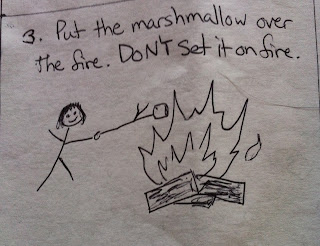 3. Put the marshmallow over
the fire. DON'T set it on fire.